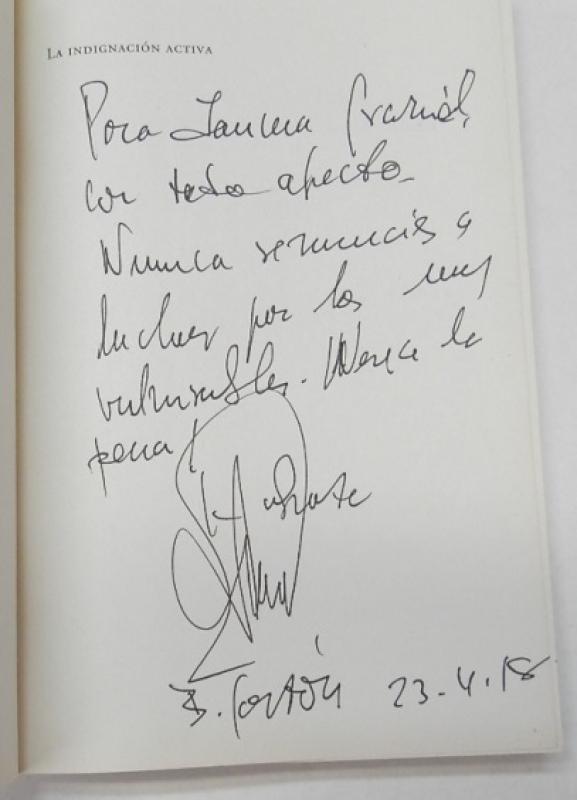 LA INDIGNACIÓN ACTIVA
Para
con todo afecto.
Nunca renunciéis a
luchar por los
vulnerables. Merece la
pena!
B. Garzón 23.4.18